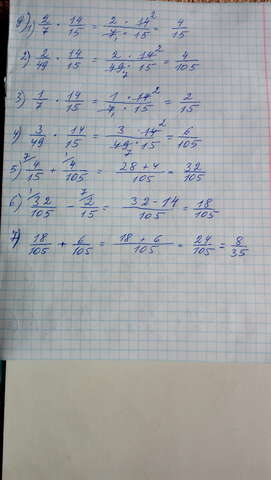 9) 1) 2/7 · 14/15 = 2 · 14²/7₁ · 15 = 4/15
2) 2/49 · 14/15 = 2 · 14²/49₇ · 15 = 4/105
3) 1/7 · 14/15 = 1 · 14²/7₁ · 15 = 2/15
4) 3/49 · 14/15 = 3 · 14²/49₇ · 15 = 6/105
5) ⁷4/15 + ¹4/105 = 28 + 4/105 = 32/105
6) ¹32/105 - ⁷2/15 = 32 - 14/105 = 18/105
7) 18/105 + 6/105 = 18 + 6/105 = 24/105 = 8/35